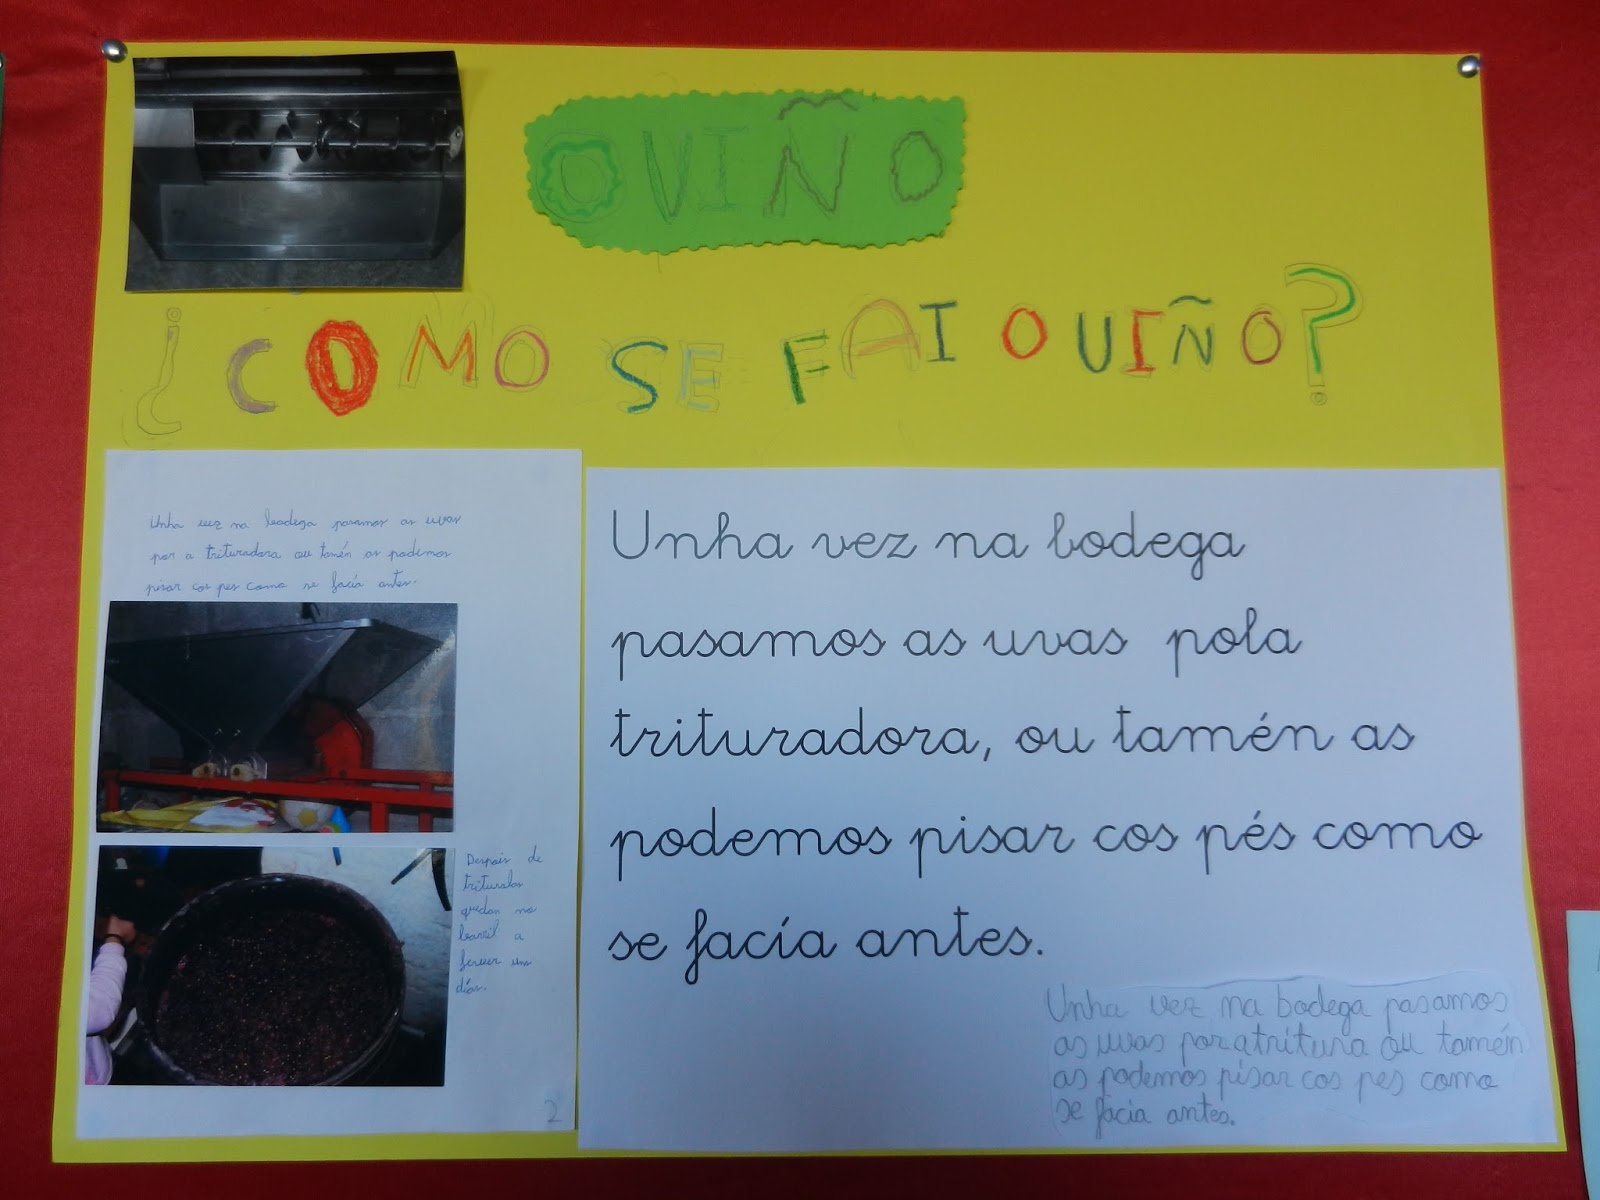 O VIÑO
¿COMO SE FAI O VIÑO?
Unha vez na bodega pasamos as uvas
por a trituradora ou tamén as podemos
pisar cos pes como se facía antes.
Despois de
trituralas
quedan no
barril a
ferver uns
días.
2
Unha vez na bodega
pasamos as uvas pola
trituradora, ou tamén as
podemos pisar cos pés como
se facía antes.
Unha vez na bodega pasamos
as uvas por a tritura ou tamén
as podemos pisar cos pes como
se facia antes.